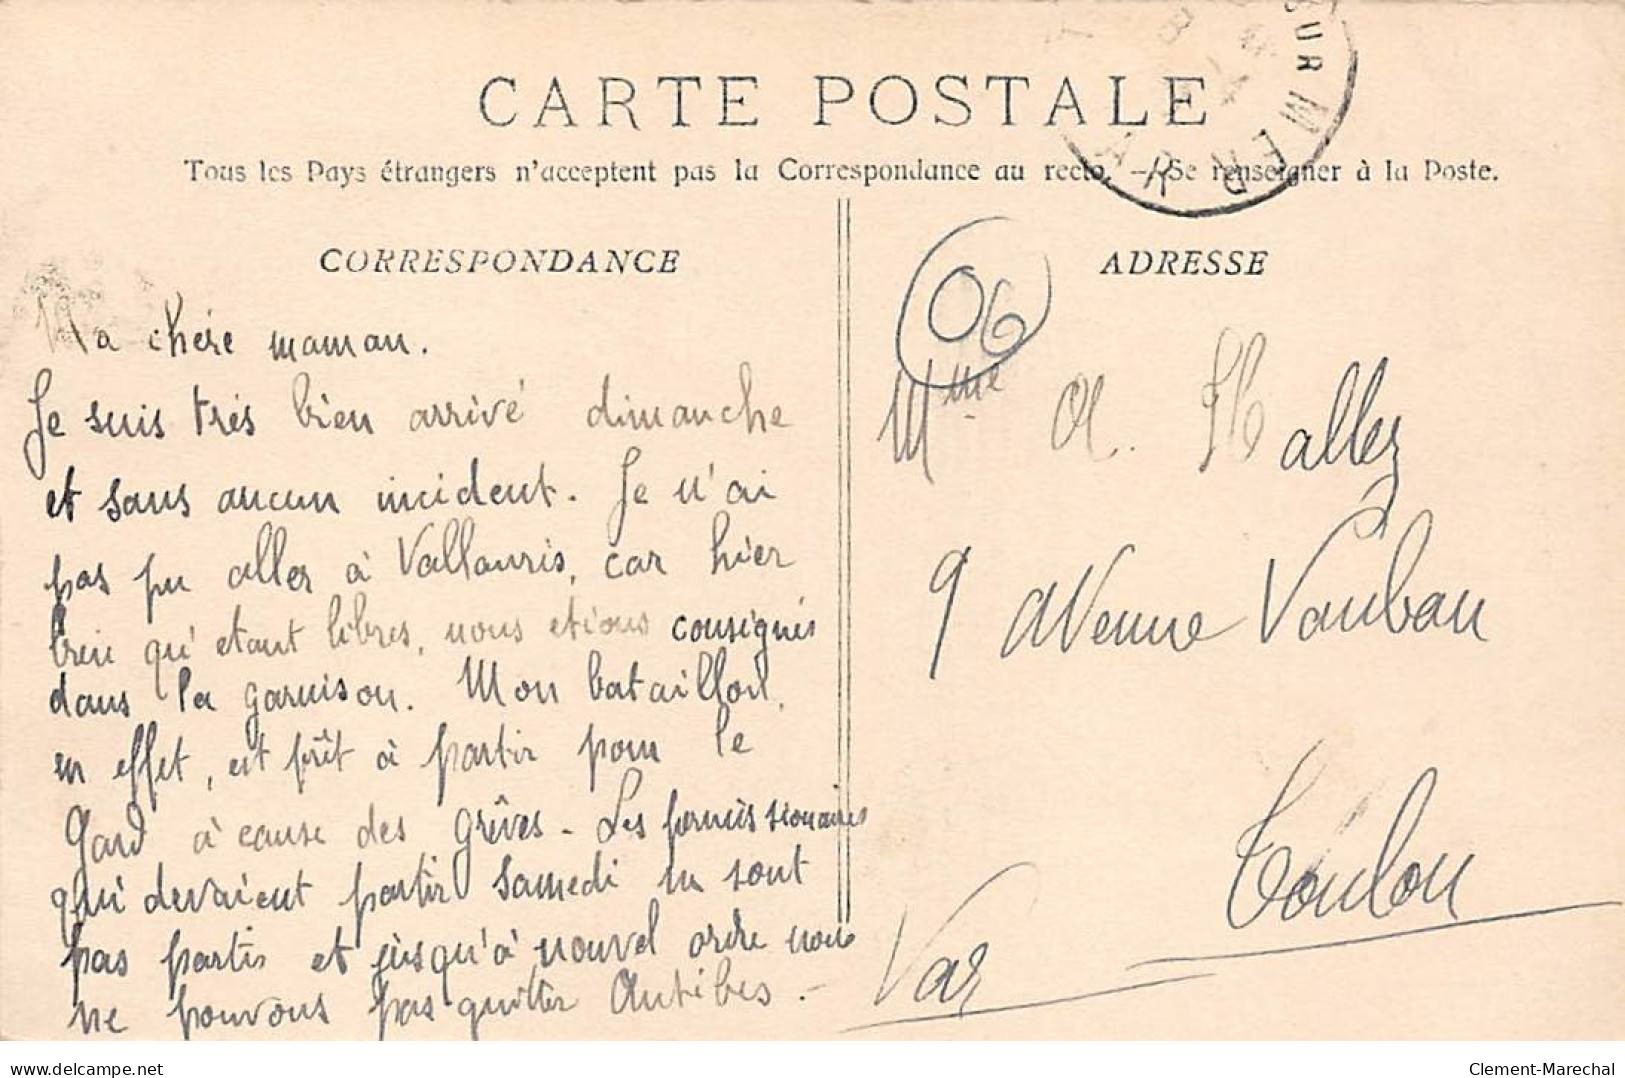 CARTE POSTALE
Tous les Pays étrangers n'acceptent pas la Correspondance au recto. — Se renseigner à la Poste.
CORRESPONDANCE
Ma chère maman.
Je suis très bien arrivé dimanche
et sans aucun incident. Je n'ai
pas pu aller à Vallauris, car hier
bien qu'etant libres, nous etions consignés
dans la garnison. Mon bataillon,
en effet, est prêt à partir pour le
Gard à cause des grêves - Les permissionaires
qui devaient partir samedi ne sont
pas partis et jusqu'à nouvel ordre nous
ne pouvons pas quitter Antibes. -
ADRESSE
06
Mme A. Hallez
9 avenue Vauban
Toulon
Var
SUR MER
VAR
delcampe.net
Clement-Marechal